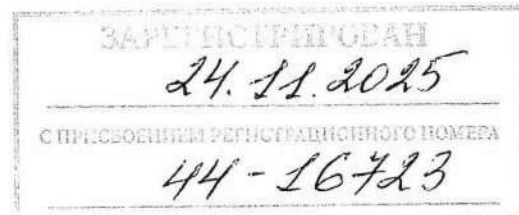 ЗАРЕГИСТРИРОВАН
24.11.2025
С ПРИСВОЕНИЕМ РЕГИСТРАЦИОННОГО НОМЕРА
44-16723